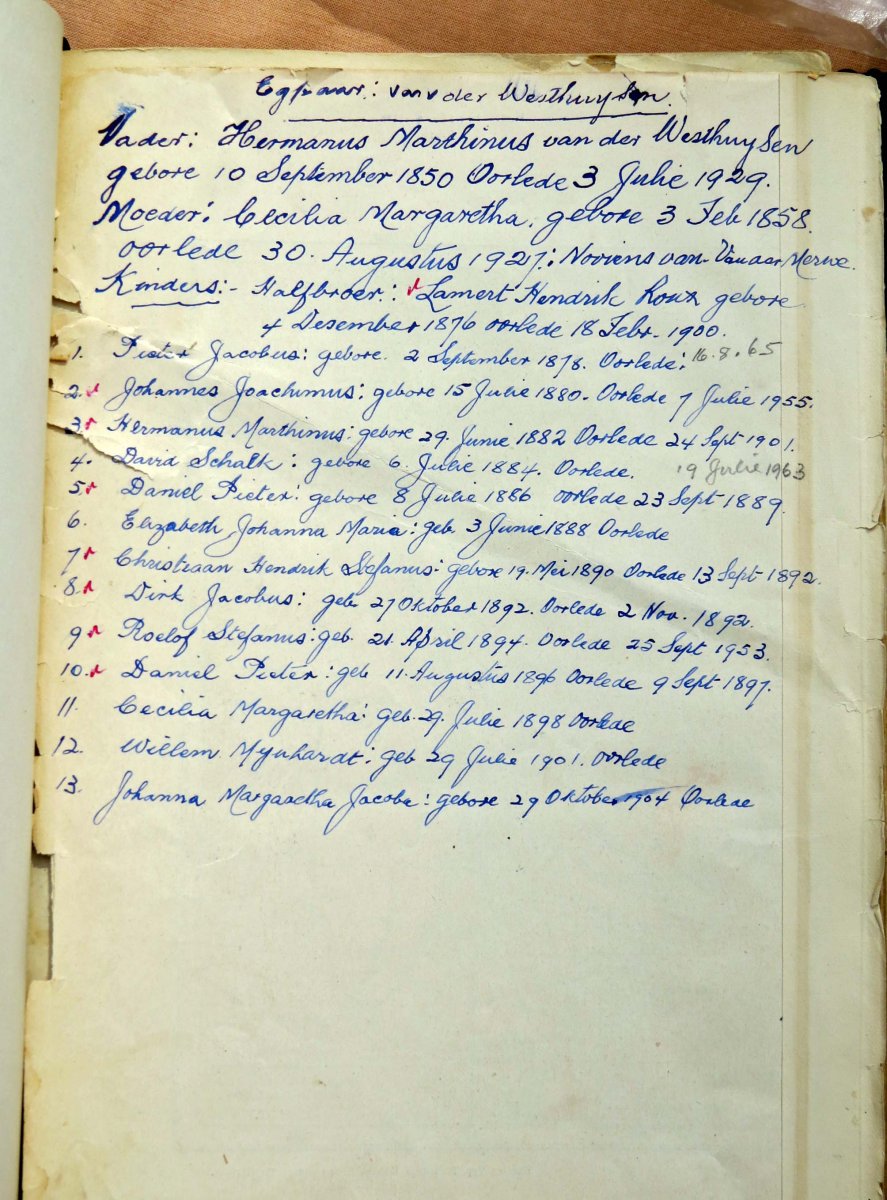 Egpaar: van der Westhuysen.
Vader: Hermanus Marthinus van der Westhuysen
gebore 10 September 1850 Oorlede 3 Julie 1929.
Moeder: Cecilia Margaretha. gebore 3 Feb 1858.
oorlede 30. Augustus 1927; Noviens van Van der Merwe.
Kinders:- Halfbroer: Lamert Hendrik Roux gebore
4 Desember 1876 oorlede 18 Febr. 1900.
1. Pieter Jacobus: gebore. 2 September 1878. Oorlede: 16.8.65
2. Johannes Joachimus: gebore 15 Julie 1880. Oorlede 7 Julie 1955.
3. Hermanus Marthinus: gebore 29. Junie 1882 Oorlede 24 Sept 1901.
4. David Schalk: gebore 6. Julie 1884. Oorlede. 19 Julie 1963
5. Daniel Pieter: gebore 8 Julie 1886 oorlede 23 Sept 1889.
6. Elizabeth Johanna Maria: geb 3 Junie 1888 Oorlede
7. Christiaan Hendrik Stefanus: gebore 19. Mei 1890 Oorlede 13 Sept 1892.
8. Dirk Jacobus: geb 27 Oktober 1892. Oorlede 2 Nov. 1892.
9. Roelof Stefanus: geb. 21. April 1894. Oorlede 25 Sept 1953.
10. Daniel Pieter: geb 11. Augustus 1896 Oorlede 9 Sept 1897.
11. Cecilia Margaretha: geb. 29. Julie 1898 Oorlede
12. Willem Mynhardt: geb 29 Julie 1901. Oorlede
13. Johanna Margaretha Jacoba: gebore 29 Oktober 1904 Oorlede